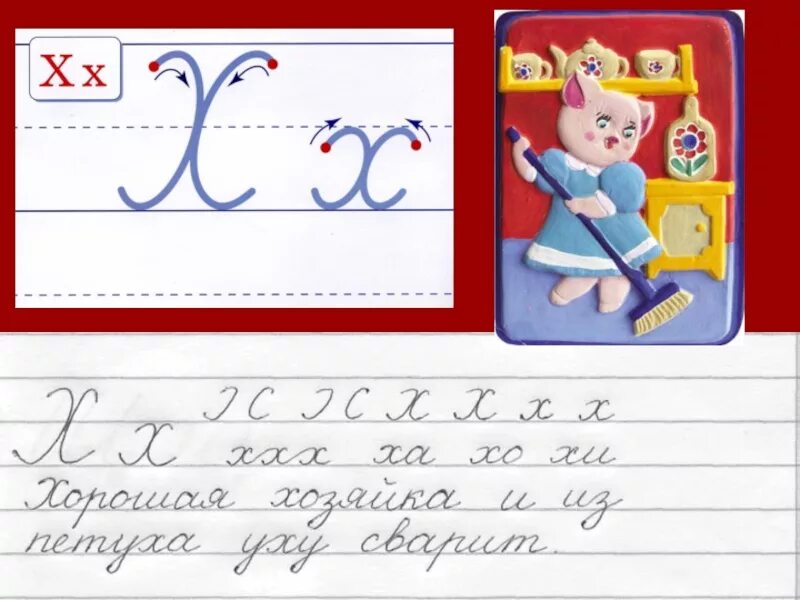 Х х
Х х
Х х Ɔ С Ɔ С Х Х х х
ххх ха хо хи
Хорошая хозяйка и из
петуха уху сварит.